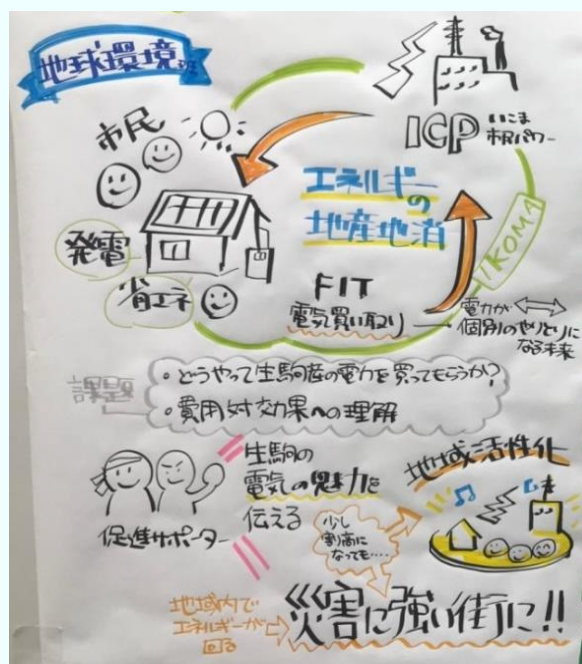 地球環境班
市民
ICP いこま
市民パワー
エネルギー
の
地産地消
発電
省エネ
IKOMA
FIT
電気買い取り
電力が
個別のやりとりに
なる未来
課題
・どうやって生駒産の電力を買ってもらうか?
・費用対効果への理解
生駒の
電気の魅力を
伝える
促進サポーター
地域活性化
少し
割高に
なっても・・・・
地域内で
エネルギーが
回る
災害に強い街に!!